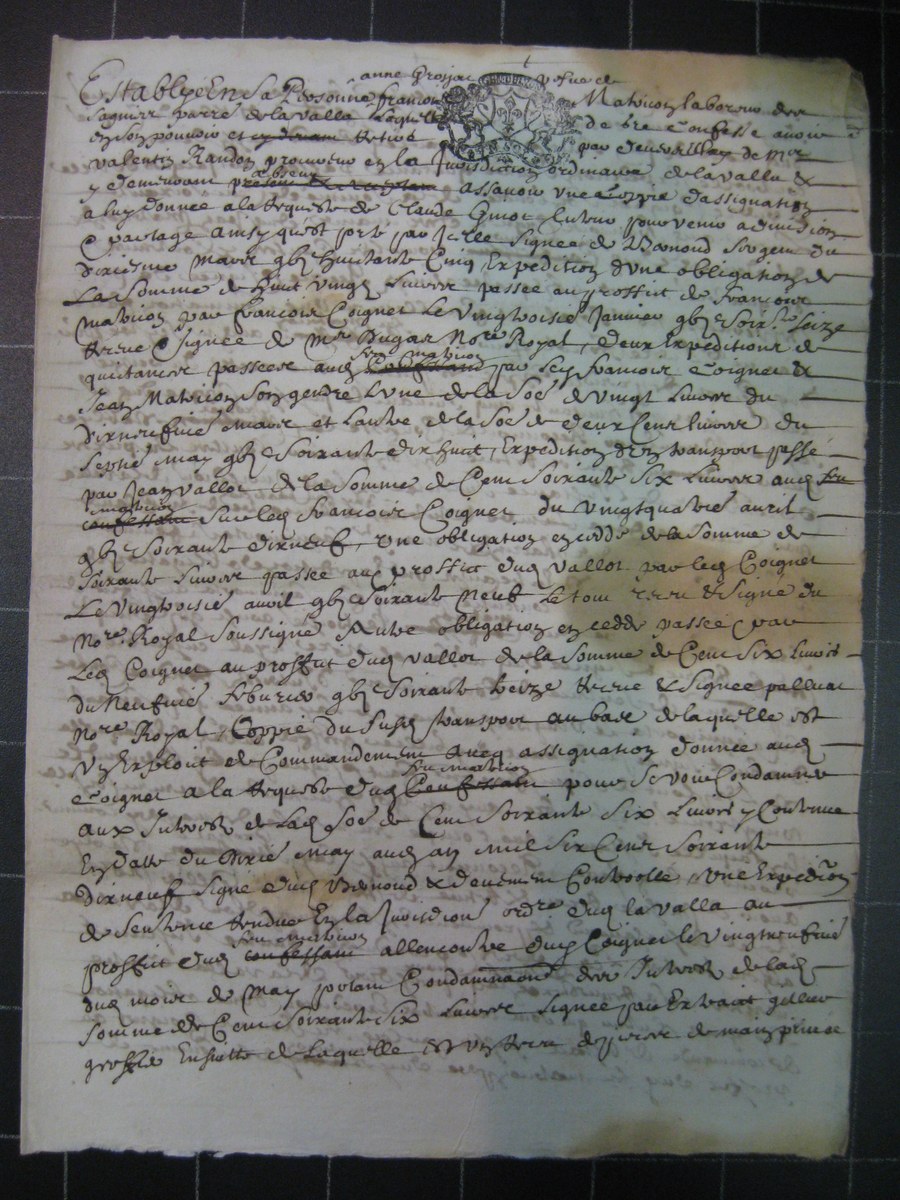 anne Grosjac vefue de
Establye En Sa Personne francois Mathicon laboreur de
la parre de la valla laquelle de gre Confesse avoir
en son pouvoir et retiré par devers de Mre
valentin Randon procureur en la Jurisdiction ordinaire de la valla &
absent
y demeurant assavoir une Coppie dassignation
a luy donnee a la Requeste de Claude Ginot pour venir a division
& partage ainsy quest porte par Icelle signee de Thenoud Sergent du
dixiesme mars gbi huictante Cinq, Expedition dune obligation de
La Somme de huict vingt livres passee au proffict de francois
mathicon par francois Coignet Le vingtroisie Janvier gbi soixte seize
Receue & signee de Mre Dugas Nore Royal, deux Expeditions de
feu mathicon
quittances passees audt par lesd francois Coignet &
Jean Mathicon Son gendre Lune de la Soe de vingt livres du
dixneufvie mars et Lautre de la Soe de deux Cens livres du
Septie may gbi soixante dixhuict, Expedition dun transport passé
par Jean vallot de la somme de Cent Soixante Six Livres aud feu
mathicon
Sur led francois Coignet du vingtquatrie avril
gbi soixante dixneuf, une obligation en cedde de la Somme de
Soixante Livres passee au proffict dud vallot par led Coignet
Le vingtroisie avril gbi soixante neuf Le tout receu & signé du
Nore Royal soussigné Autre obligation en cedde passee par
Led Coignet au proffict dud vallot de la somme de Cent Six Livres
du Neufvie febvrier gbi soixante treize Receue & Signee palluat
Nore Royal, Coppie du susd transport au bas de laquelle est
un Exploit de Commandement Avec assignation donnee aud
feu mathicon
Coignet a la Requeste dud confessant pour se voir Condamner
aux Interestz de Lad Soe de Cent Soixante Six Livres y Contenue
En datte du dixie may aud an mil six Cens Soixante
Dixneuf signé dud Thenoud & deuement Controollé, une Expedition
de Sentence Rendue En la Jurisdion ordre dud la valla au
feu mathicon
proffict dud confessant allencontre dud Coignet le vingtneufvie
dud mois de May portant Condamnaon des Interestz de lad
somme de Cent Soixante Six Livres signee par Extraict
greffier Ensuitte de laquelle est un